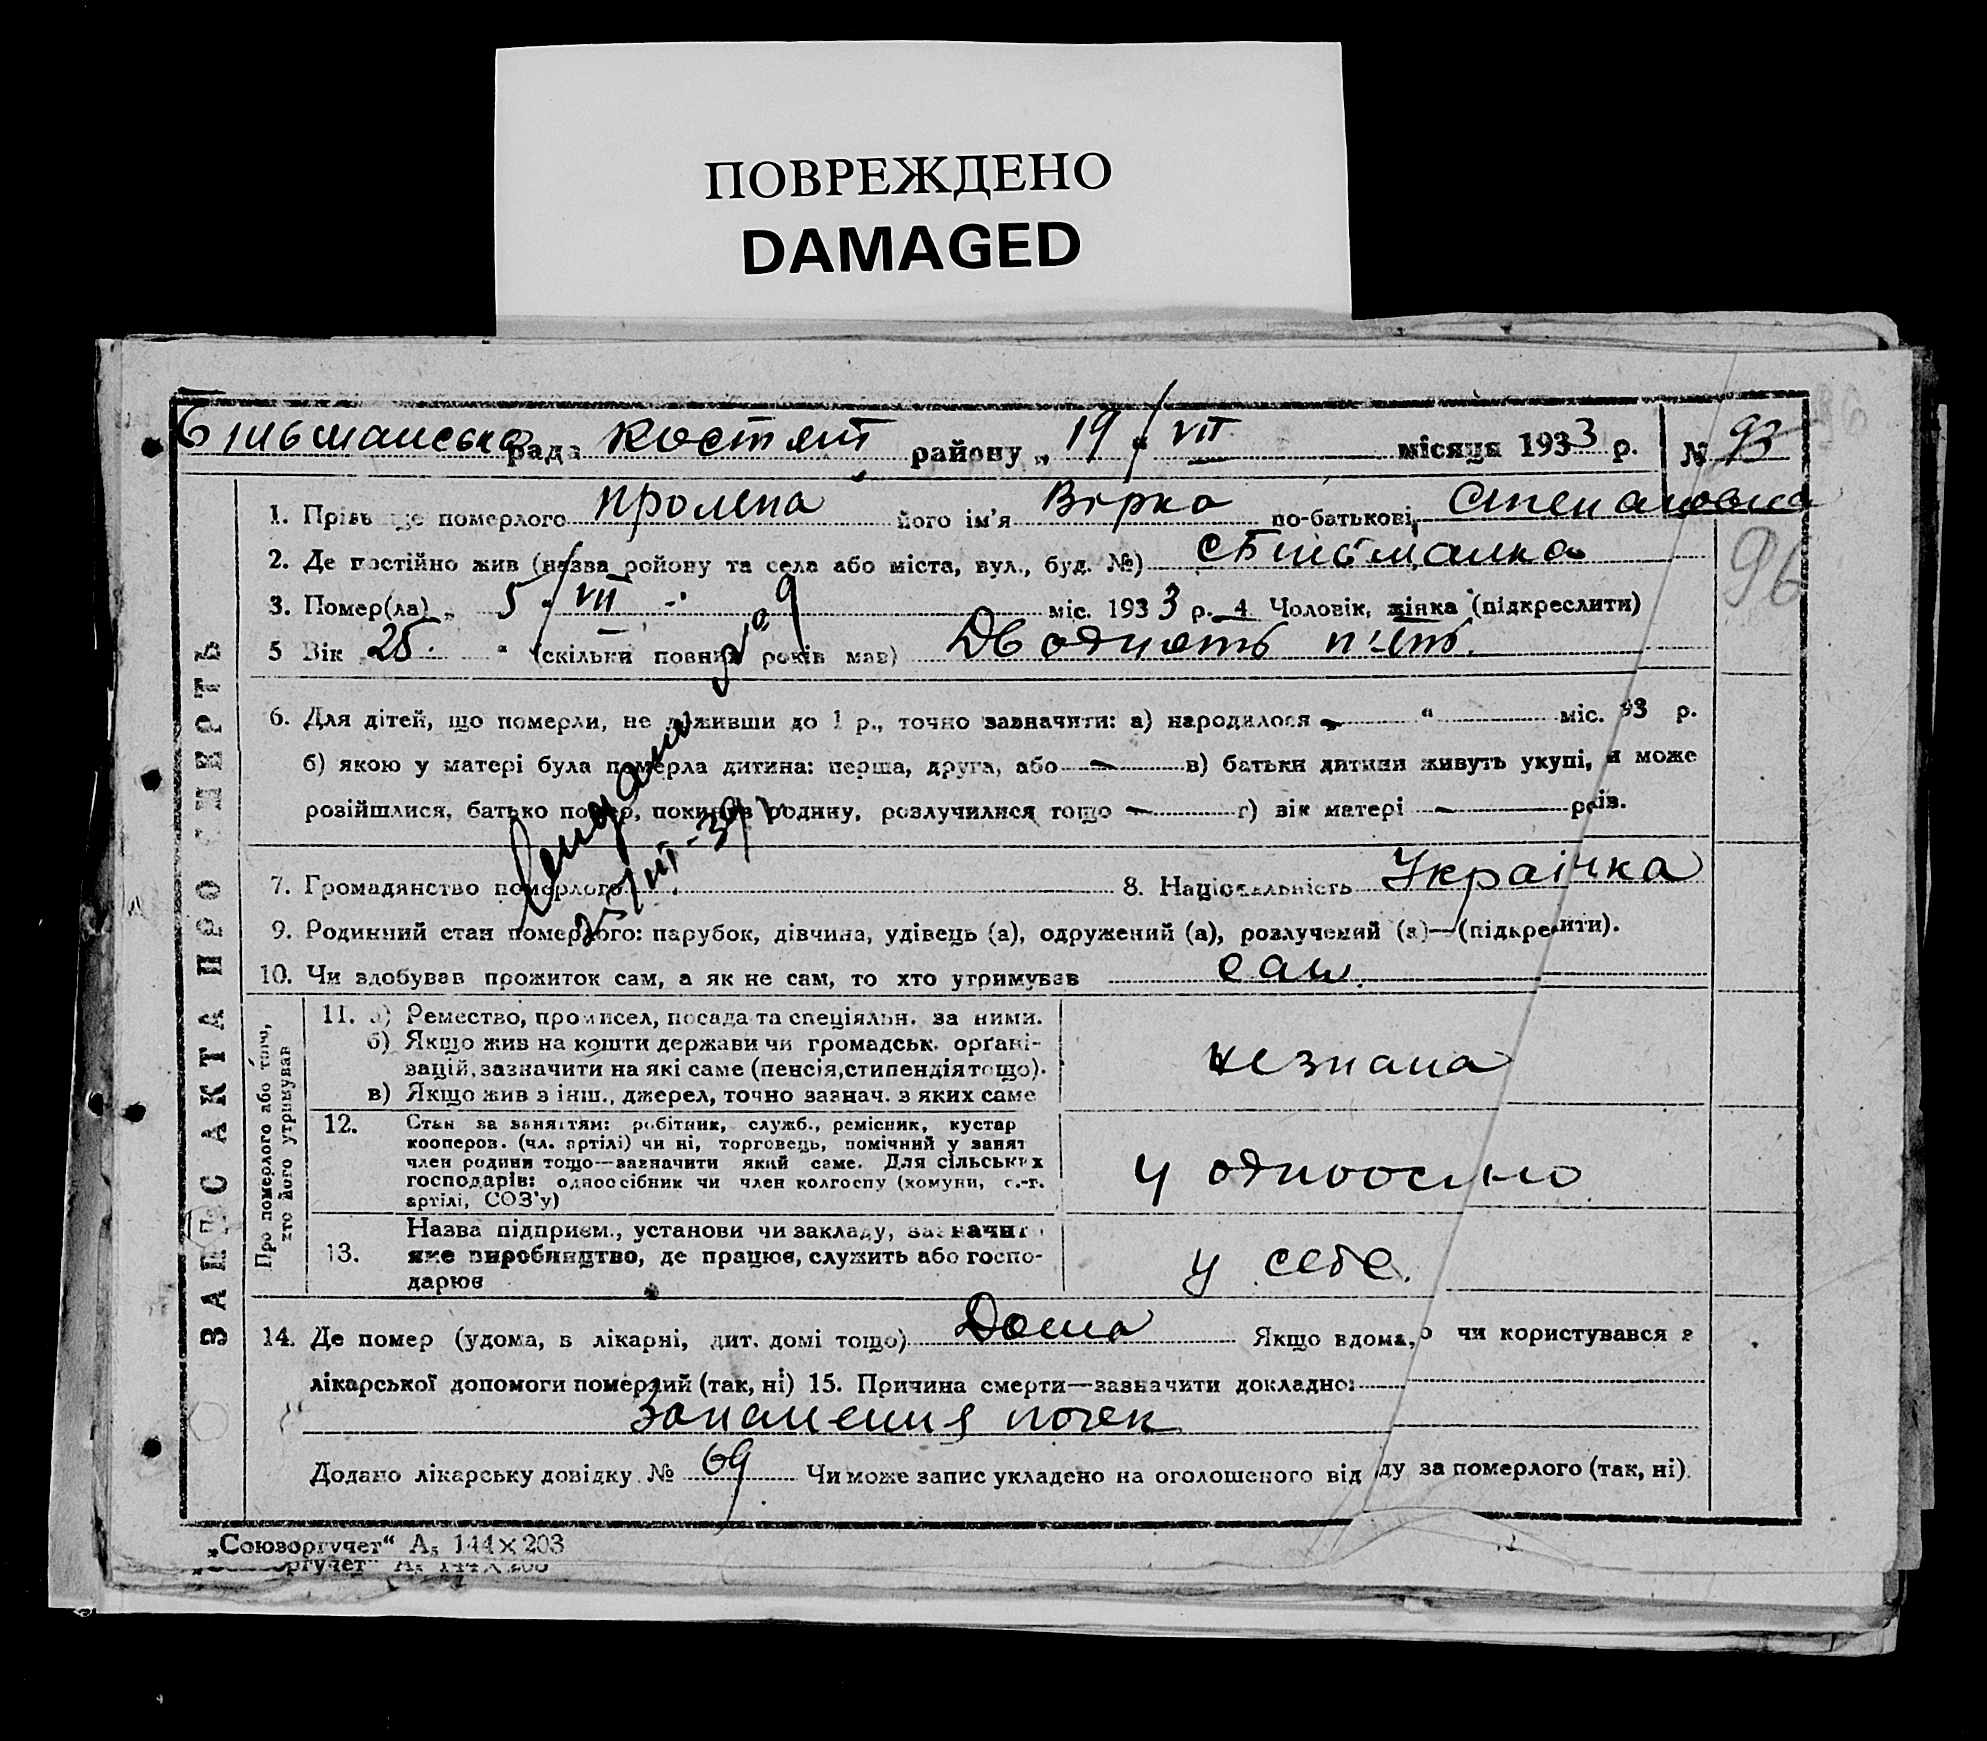 ПОВРЕЖДЕНО
DAMAGED
Більманська рада Костянт району „ 19 “ VII місяця 1933 р. № 93
1. Прізвище померлого Пролепа його ім'я Вірка по-батькові Степановна
96
2. Де постійно жив (назва ройону та села або міста, вул., буд. №) с Більманка
3. Помер(ла) „ 5 “ VII міс. 1933 р. 4 Чоловік, жінка (підкреслити)
5 Вік 25 “ (скільки повних років мав) Двадцять п'ять.
6. Для дітей, що померли, не доживши до 1 р., точно зазначити: а) народилося “ міс. 93 р.
б) якою у матері була померла дитина: перша, друга, або в) батьки дитини живуть укупі, и може
розійшлися, батько помер, покинув родину, розлучилися тощо г) вік матері років.
7. Громадянство померлого 8. Національність Українка
9. Родинний стан померлого: парубок, дівчина, удівець (а), одружений (а), розлучений (а)—(підкреслити).
10. Чи здобував прожиток сам, а як не сам, то хто утримував сам
ЗАПИС АКТА ПРО СМЕРТЬ
Про померлого або того, хто його утримував
11. а) Ремество, промисел, посада та спеціяльн. за ними.
б) Якщо жив на кошти держави чи громадськ. органі-
зацій, зазначити на які саме (пенсія, стипендія тощо).
в) Якщо жив з інш., джерел, точно зазнач. з яких саме
незнана
12. Стан за заняттям: робітник, служб., ремісник, кустар
кооперов. (чл. артілі) чи ні, торговець, помічний у занят
член родини тощо—зазначити який саме. Для сільських
господарів: одноосібник чи член колгоспу (комуни, с.-г.
артілі, СОЗ'у)
13. Назва підприєм., установи чи закладу, зазначити
яке виробництво, де працює, служить або госпо-
дарює
у себе.
14. Де помер (удома, в лікарні, дит. домі тощо) Дома Якщо вдома, о чи користувався з
лікарської допомоги померлий (так, ні) 15. Причина смерти—зазначити докладно:
Запаления почек
Додано лікарську довідку № 69 Чи може запис укладено на оголошеного від ду за померлого (так, ні).
„Союзоргучет“ А5 144×203
оргучет“ А5 144×203